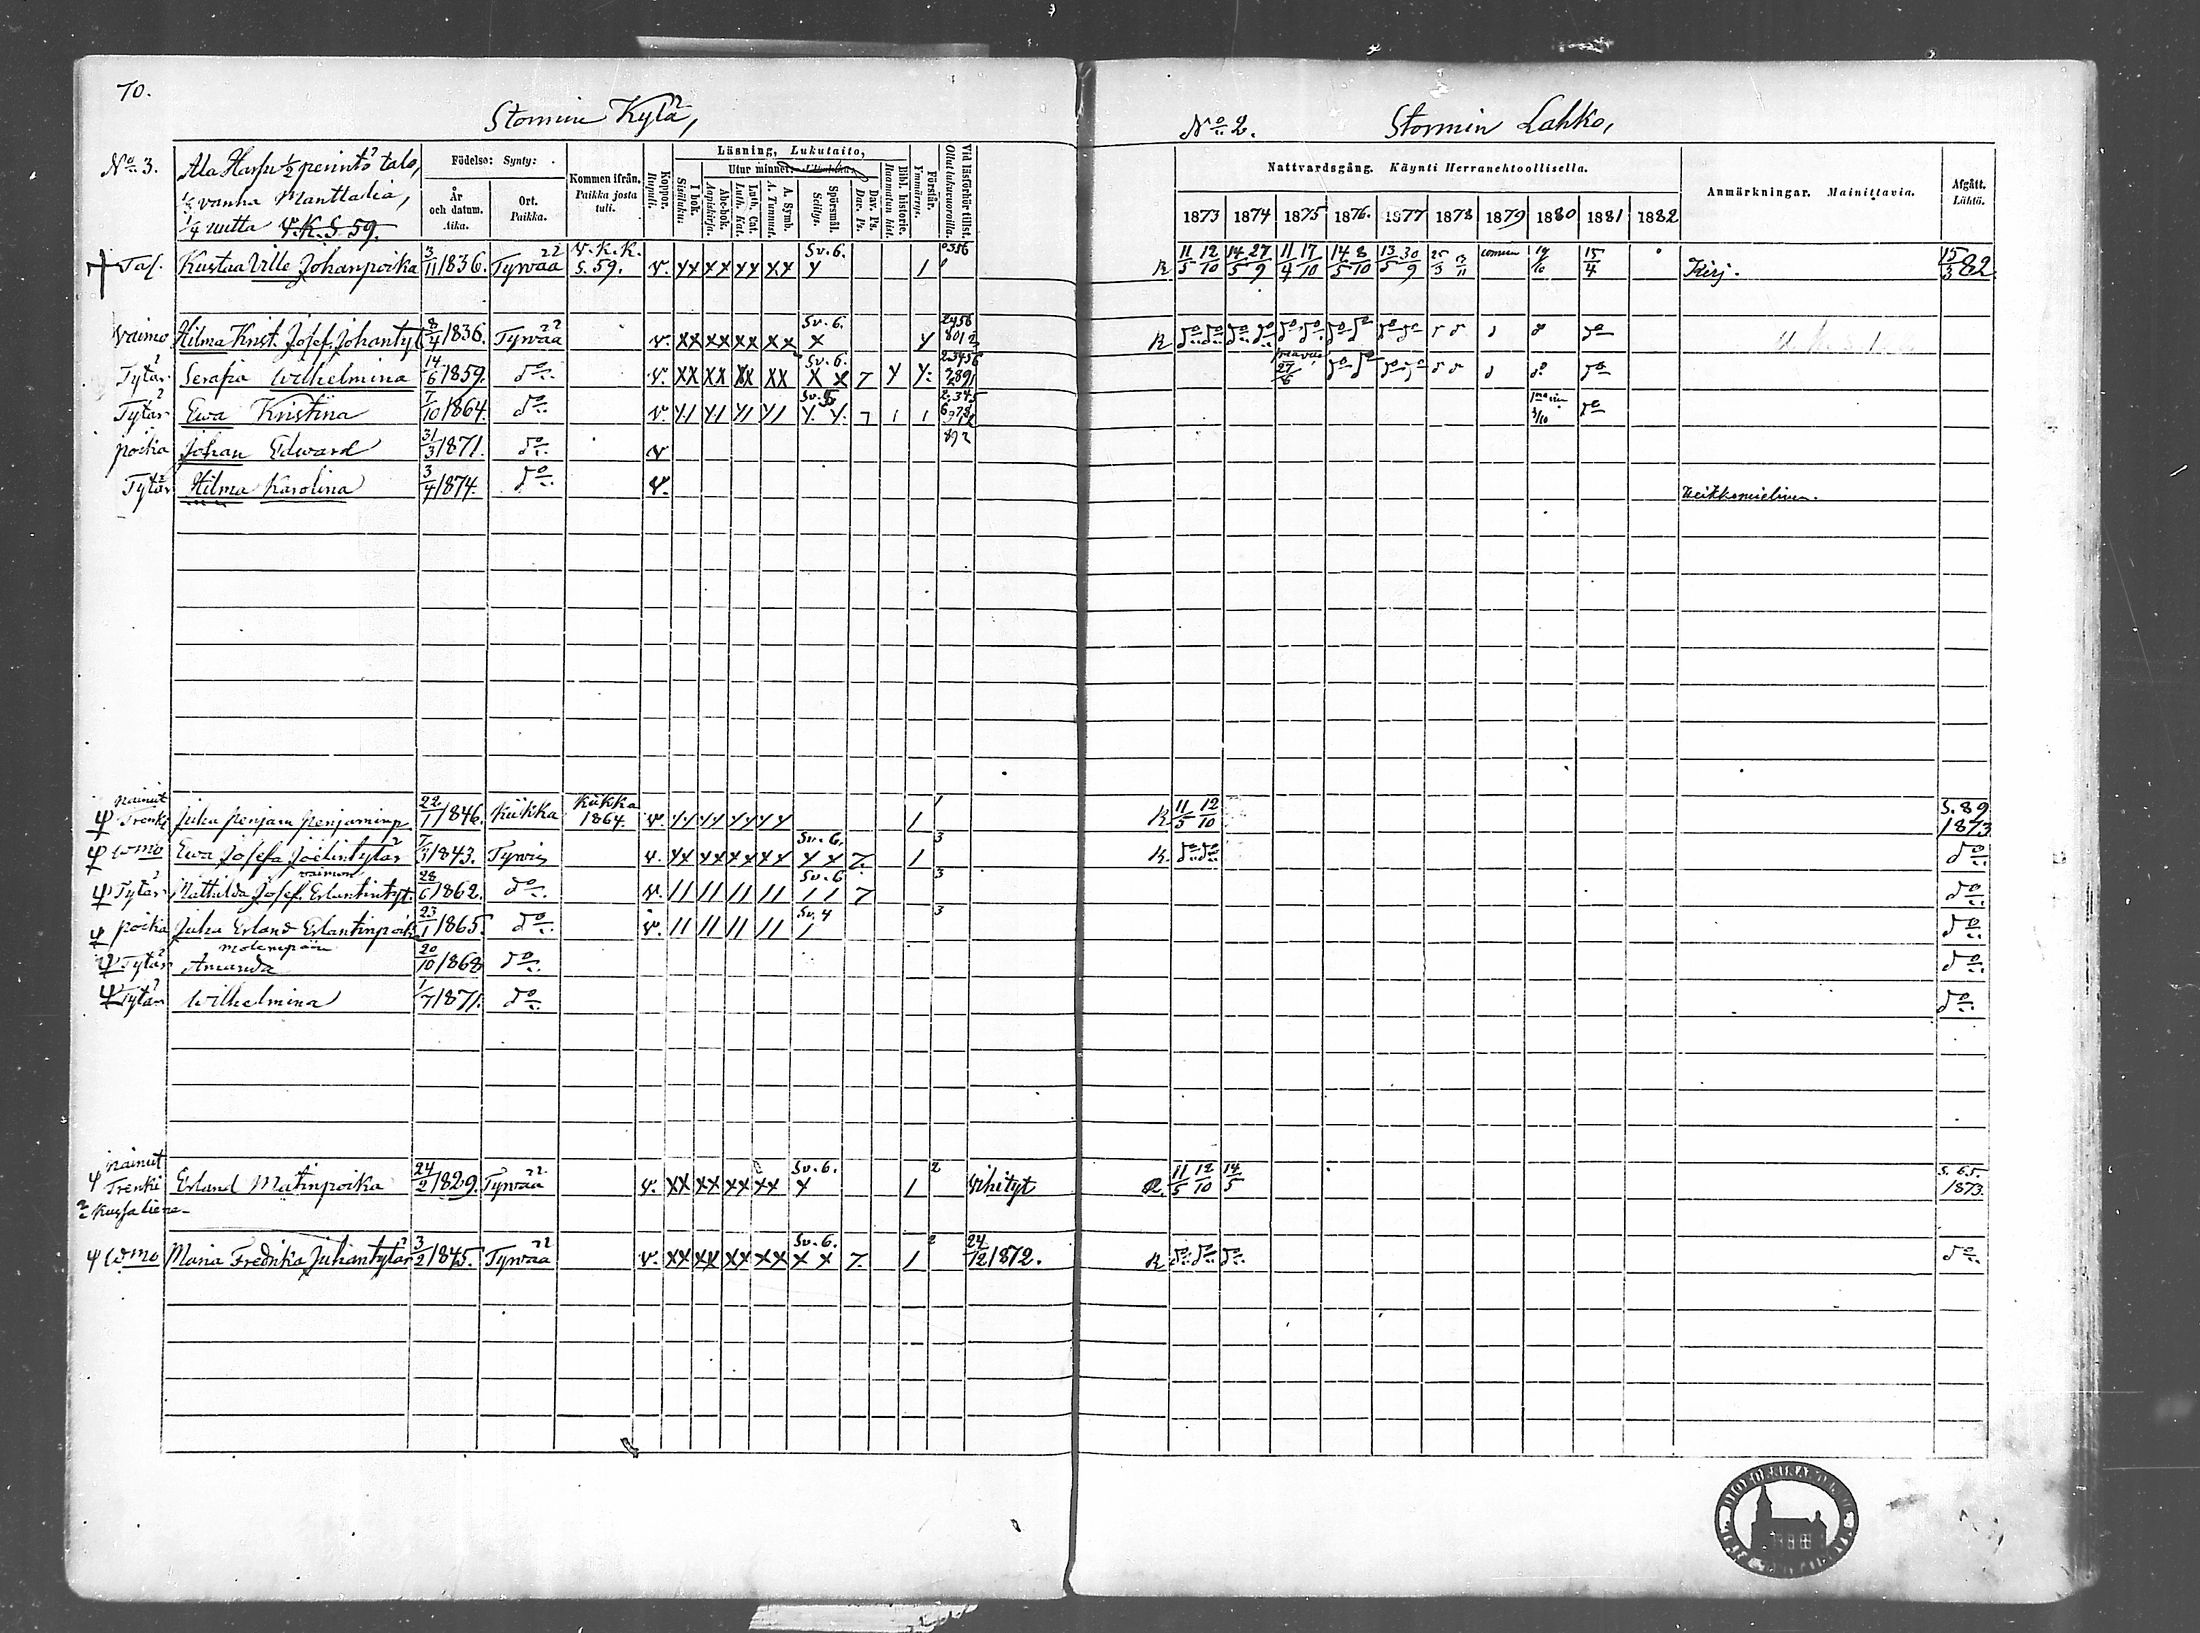 70.
Stormin Kylä,
No 2.
Stormin Lahko,
No 3.
Ala Harju 1/2 perintö talo,
1/2 vanha Manttalia,
1/4 uutta V.K.S. 59.
Födelse: Synty:
År och datum. Aika.
Ort. Paikka.
Kommen ifrån. Paikka josta tuli.
Koppor. Rupuli.
Läsning, Lukutaito,
I bok. Sisäluku.
Utur minnet:
Abc-bok. Aapiskirja.
Luth. Cat. Luth. Kat.
A. Symb. A. Tunnust.
Spörsmål. Selitys.
Dav. Ps. Dav. Ps.
Bibl. historie. Raamatun hist.
Förstår. Ymmärrys.
Vid läsförhör tillst. Ollut lukuvuoroilla.
Nattvardsgång. Käynti Herranehtoollisella.
1873 1874 1875 1876. 1877 1878 1879 1880 1881 1882
Anmärkningar. Mainittavia.
Afgått. Lähtö.
Tal. Kustaa Ville Johanpoika 3/11 1836. Tyrvää V.K.K. S. 59. v. xx xx xx xx Sv. 6. 1 R 11/5 12/10 14/5 27/9 11/4 17/10 14/5 8/10 13/5 30/9 15/4 Kirj. 15/3 82
Vaimo Hilma Krist. Josef. Johantyt 8/4 1836. Tyrvää v. xx xx xx xx Sv. 6. x R do do do do do do
Tytär Serafia Wilhelmina 14/6 1859. do v. xx xx xx xx Sv. 6. x x 7 27/6 do do
Tytär Ewa Kristina 7/10 1864. do v. 7 1 1 do
poika Johan Edward 31/3 1871. do v
Tytär Hilma Karolina 3/4 1874. do v. Heikkomielinen.
nainut
Trenki Juha Penjam Penjaminp. 22/1 1846. Kiikka Kiikka 1864. v. 1 R 11/5 12/10 S. 89 1873
wmo Ewa Josefa Joelintytär 1843. Tyrvis v. Sv. 6. 7. 1 3 R. do do do
vaimon
Tytär Mathilda Josef. Erlantintyt. 28/6 1862. do v. 11 11 11 11 Sv. 6 1 1 7 3 do
poika Juha Erland Erlantinpoika 23/1 1865. do v. 11 11 11 11 Sv. 4 1 3 do
molempain
Tytär Amanda 20/10 1868 do do
Tytär Wilhelmina 1/7 1871. do do
nainut
Trenki Erland Matinpoika 24/2 1829. Tyrvää v. xx xx xx xx Sv. 6. x 1 2 Vihityt R. 11/5 12/10 14/5 S. 65. 1873.
wmo Maria Fredrika Juhantytär 3/2 1845. Tyrvää v. xx xx xx xx Sv. 6. x x 7. 1 2 24/12 1872. R do do do do